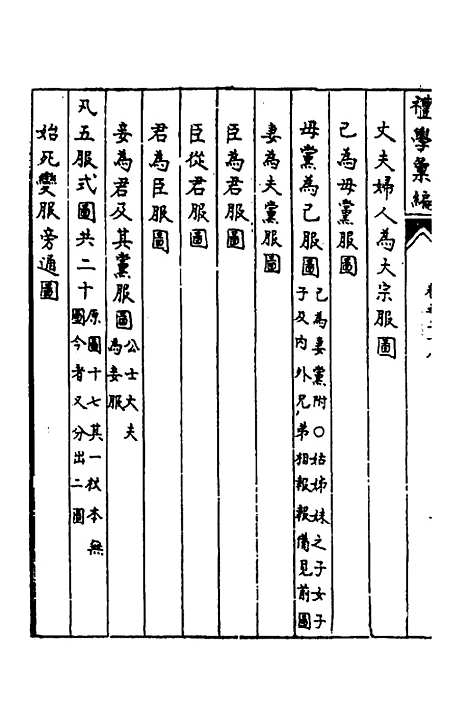 禮學彙編
丈夫婦人為大宗服圖
己為母黨服圖
母黨為己服圖己為妻黨附〇姑姊妹之子女子子及内外兄弟相報報備見前圖
妻為夫黨服圖
臣為君服圖
臣從君服圖
君為臣服圖
妾為君及其黨服圖公士大夫為妾服
凡五服式圖共二十原圖十七其一牧本無圖今者又分出二圖
始死變服旁通圖